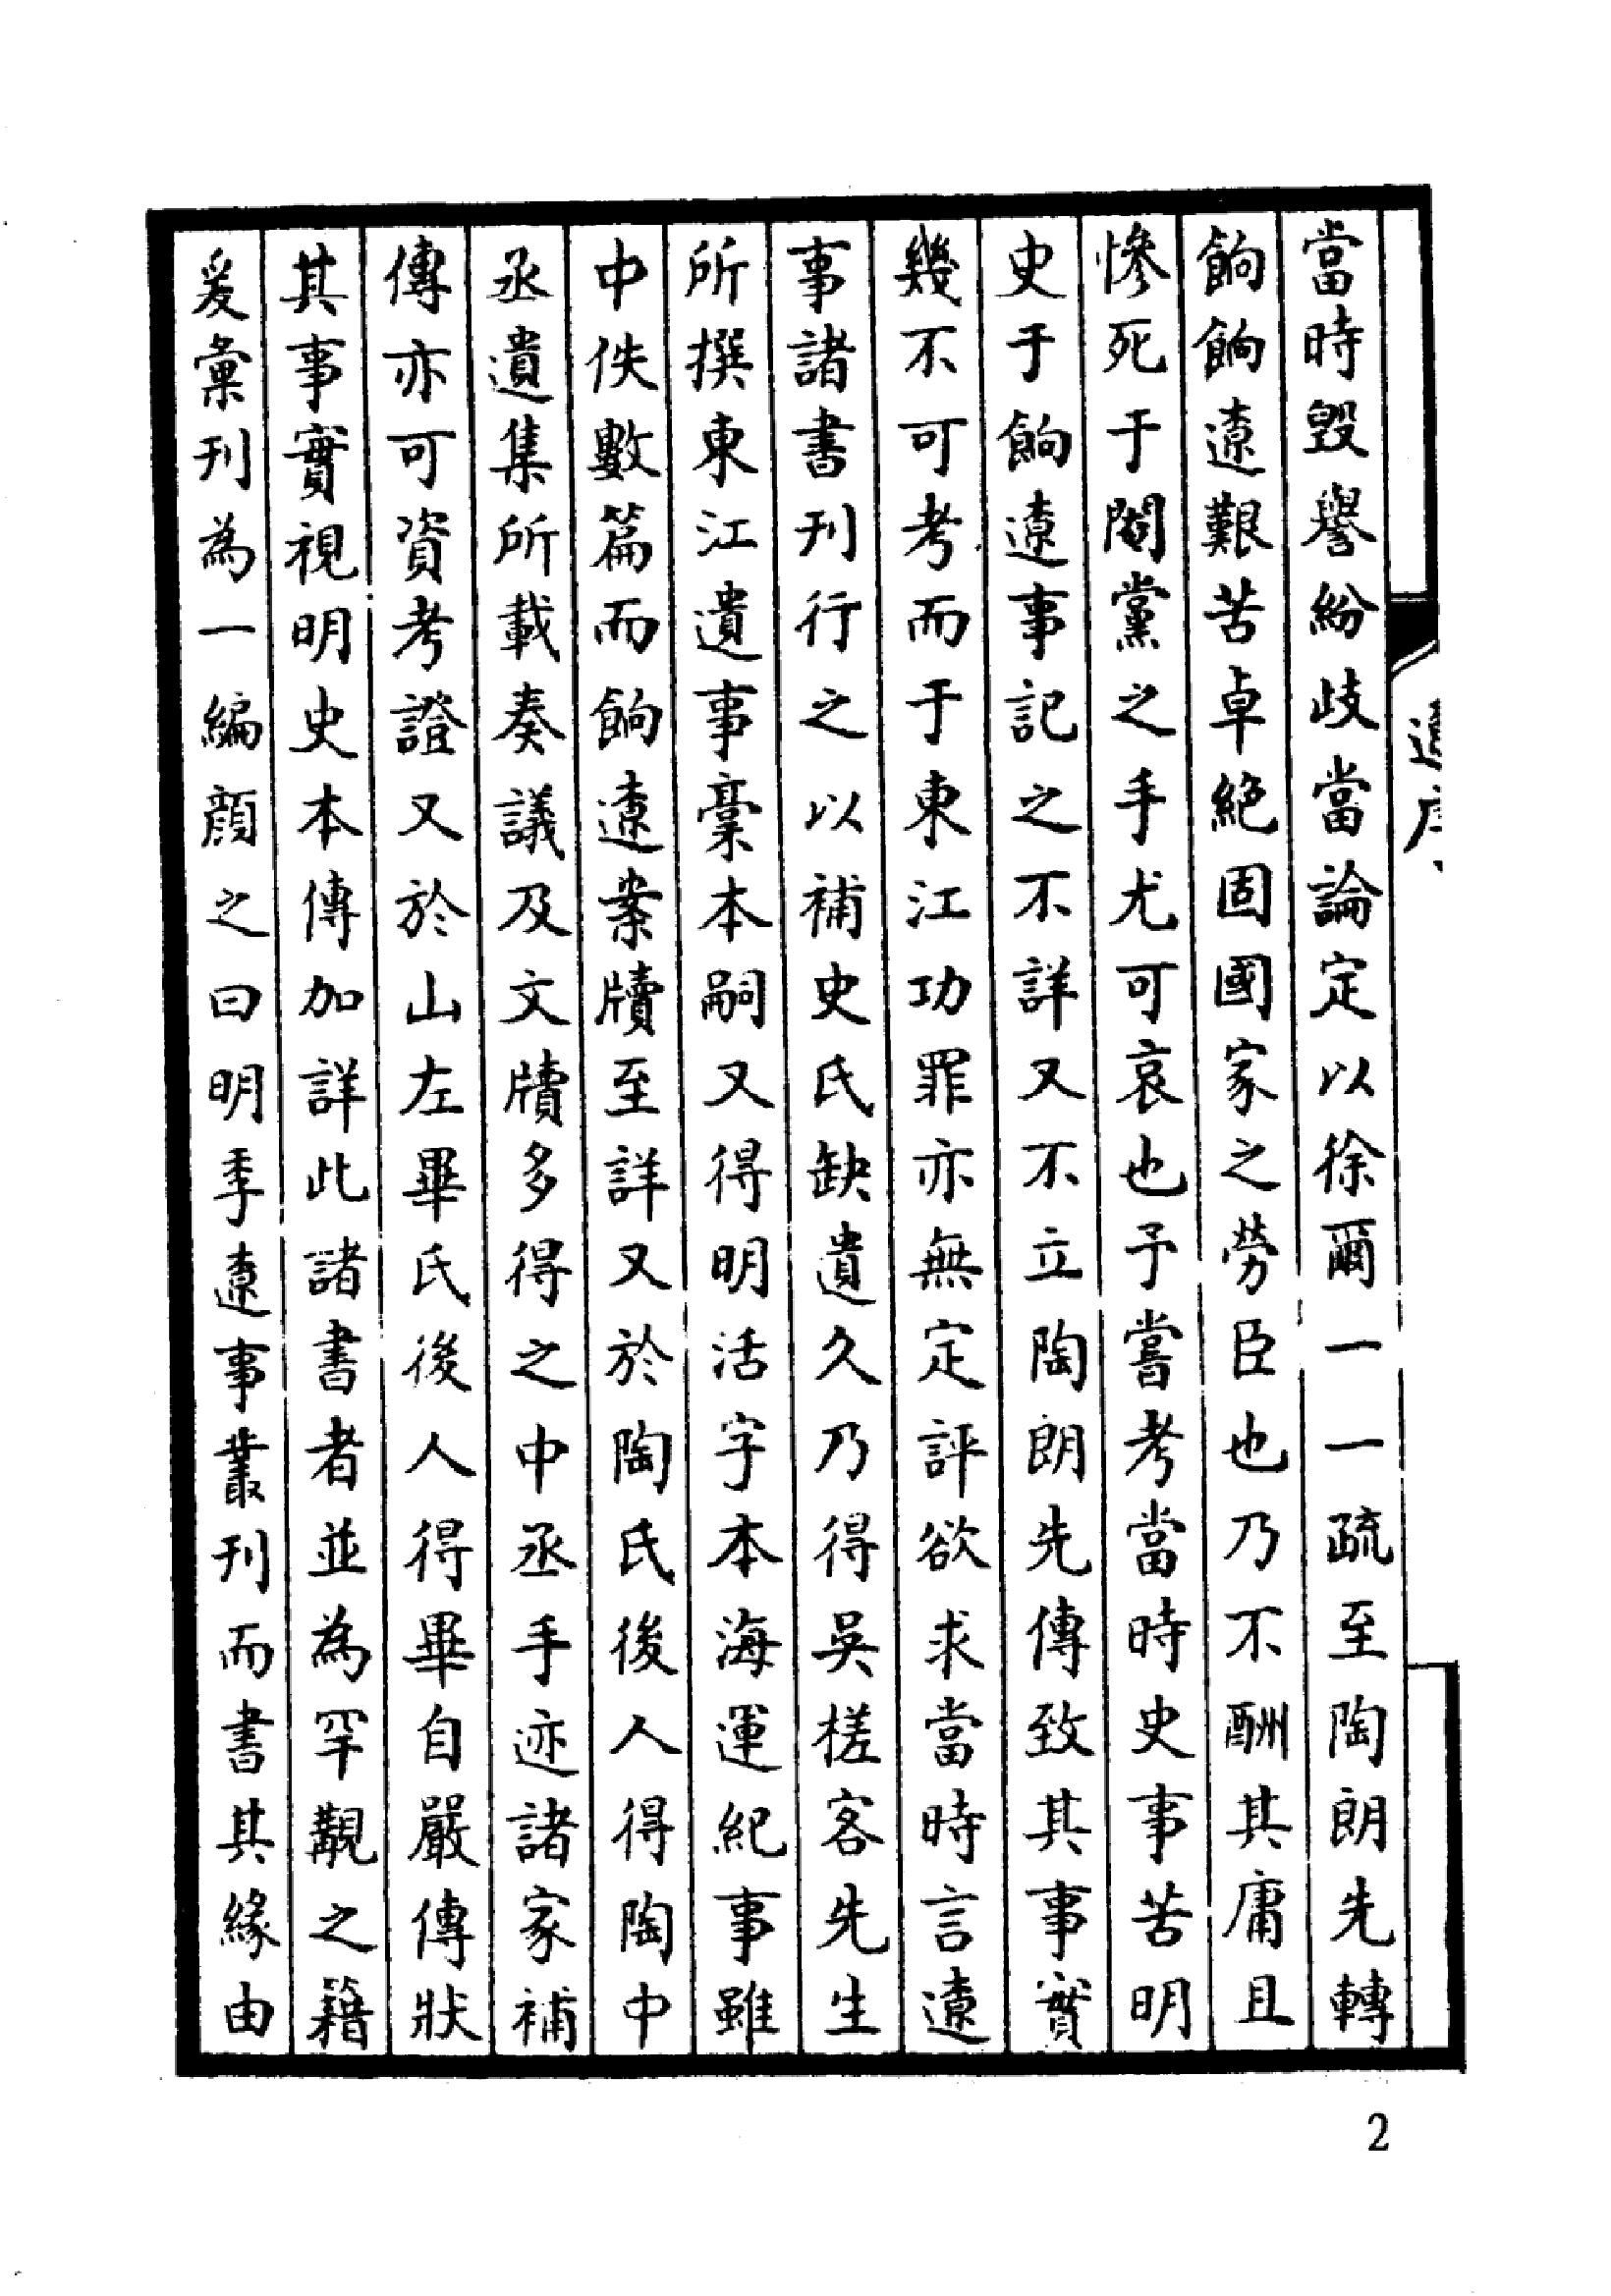 當時毀譽紛歧當論定以徐爾一一疏至陶朗先轉
餉餉遼艱苦卓絕固國家之勞臣也乃不酬其庸且
慘死于閹黨之手尤可哀也予嘗考當時史事苦明
史于餉遼事記之不詳又不立陶朗先傳致其事實
幾不可考而于東江功罪亦無定評欲求當時言遼
事諸書刊行之以補史氏缺遺久乃得吳槎客先生
所撰東江遺事稾本嗣又得明活字本海運紀事雖
中佚數篇而餉遼案牘至詳又於陶氏後人得陶中
丞遺集所載奏議及文牘多得之中丞手迹諸家補
傳亦可資考證又於山左畢氏後人得畢自嚴傳狀
其事實視明史本傳加詳此諸書者並為罕覯之籍
爰彙刊為一編顏之曰明季遼事叢刊而書其緣由
2